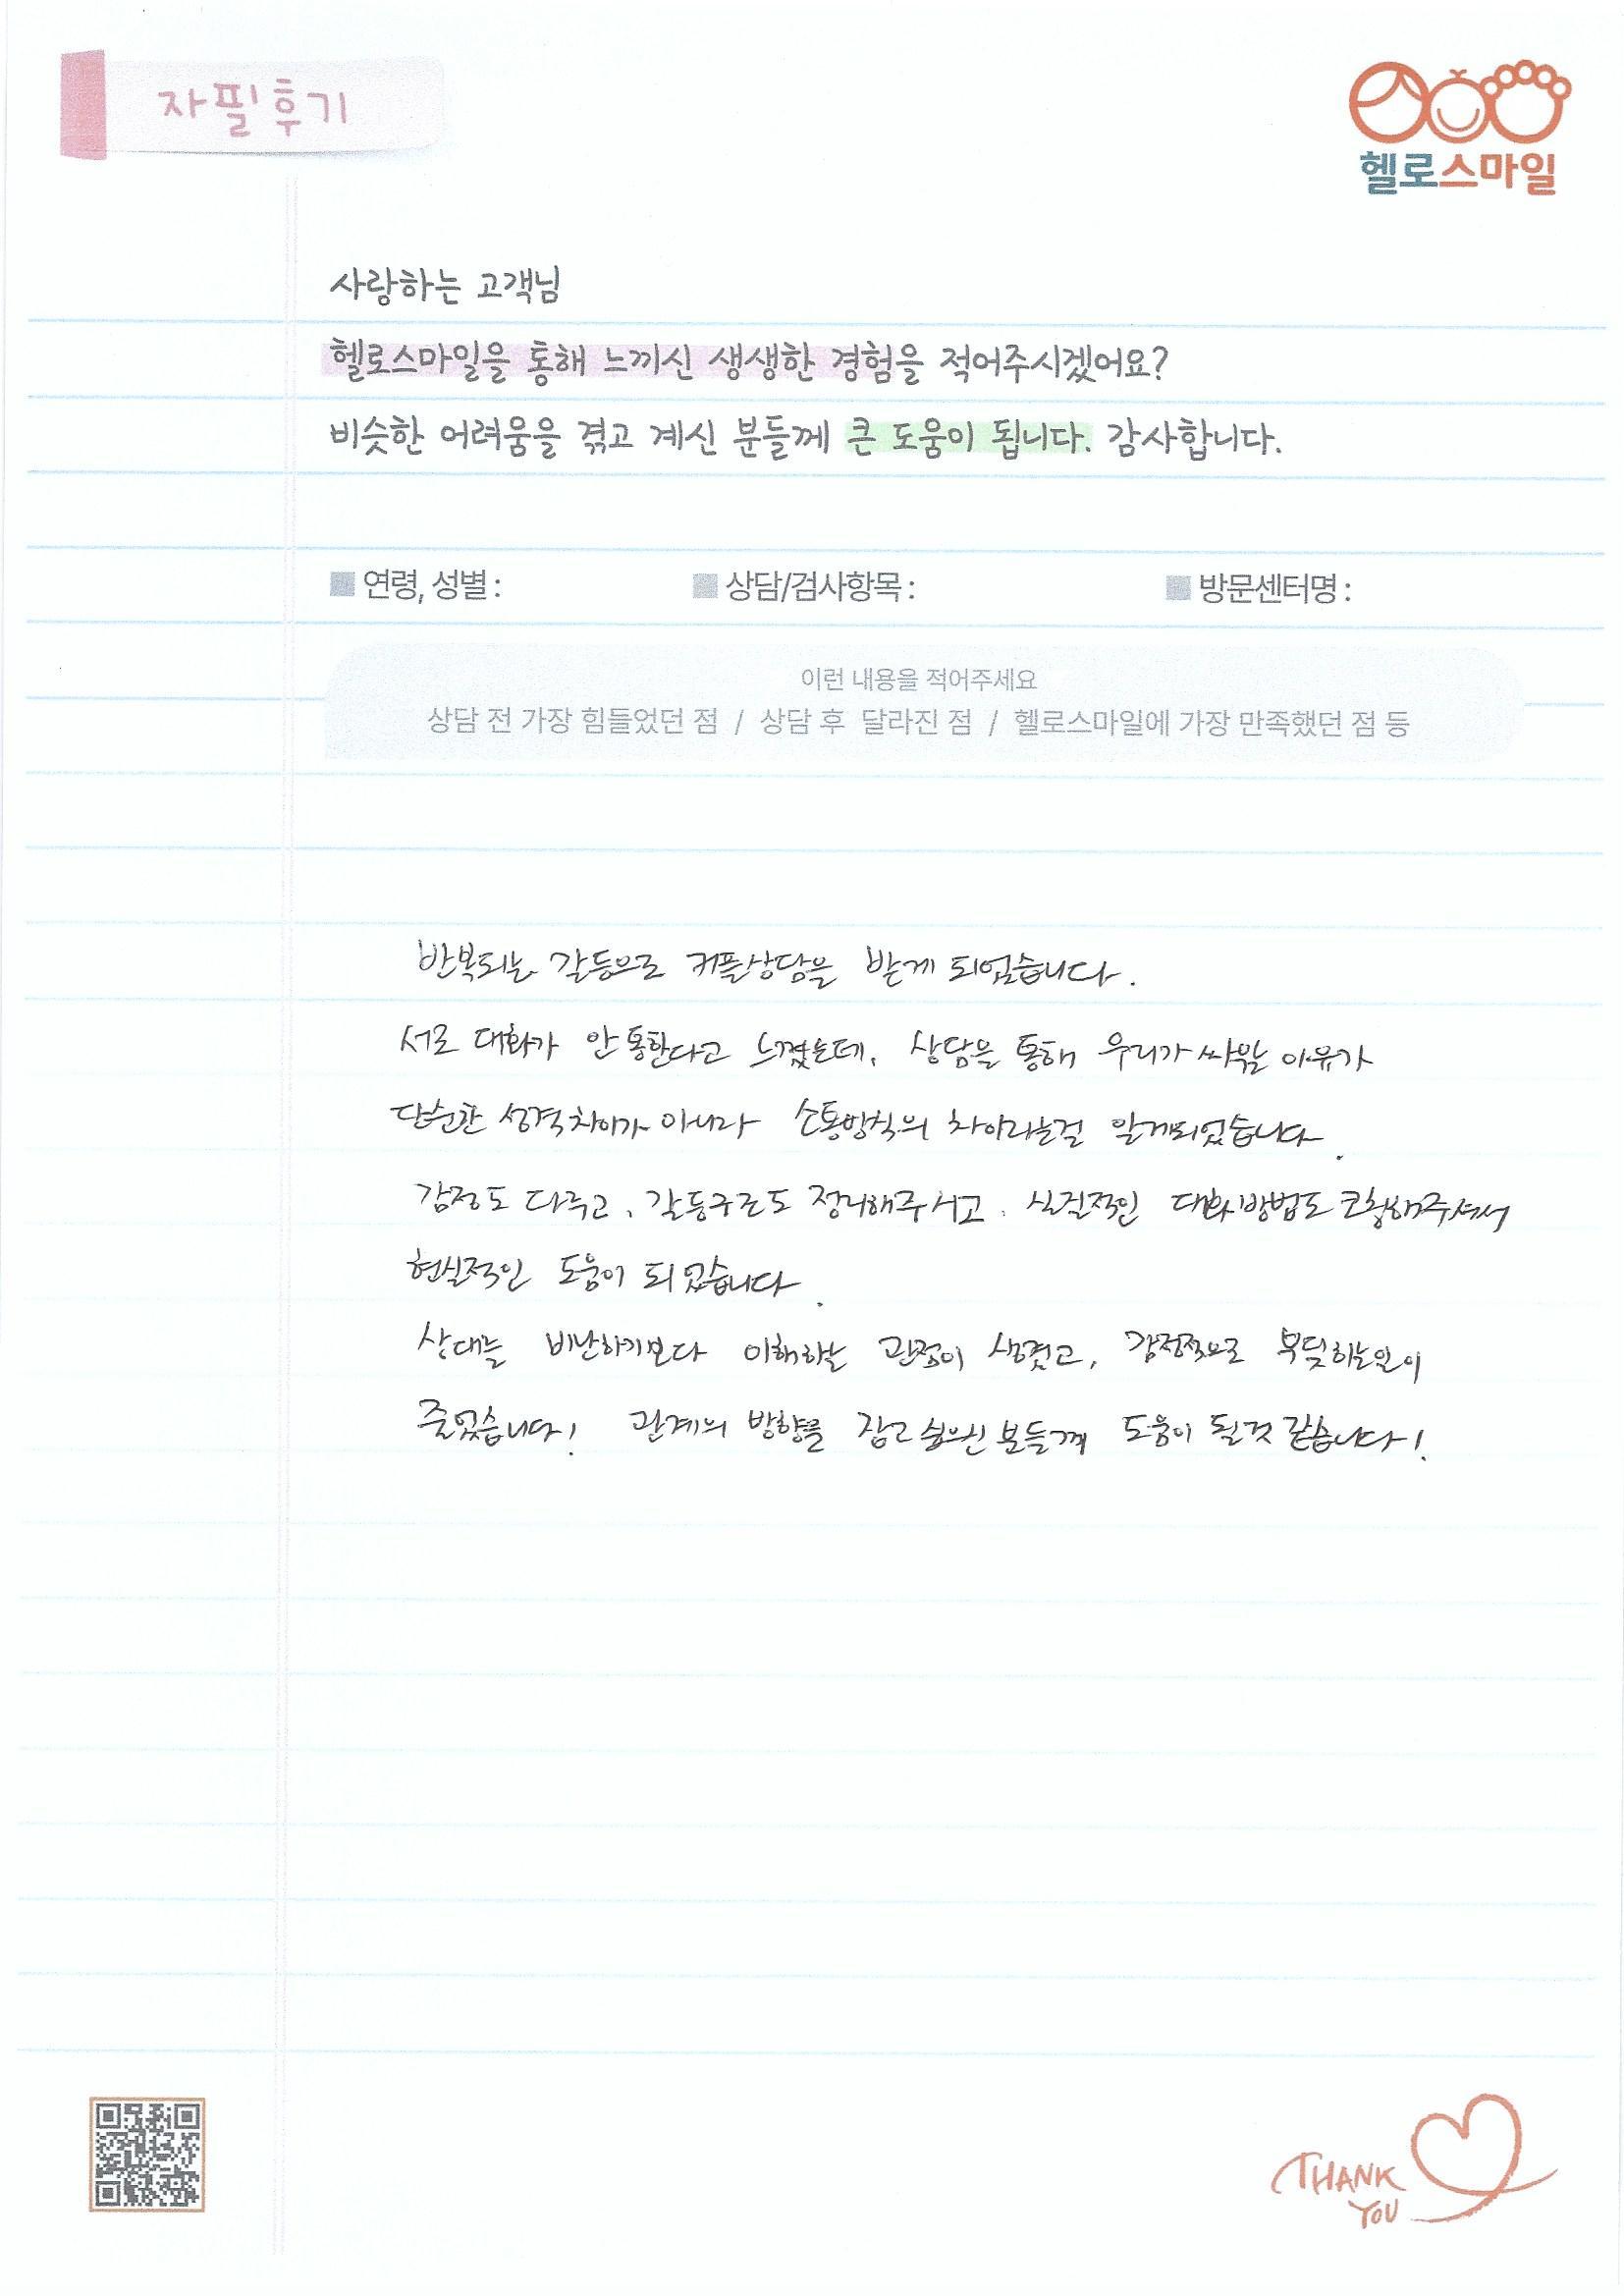 자필후기
헬로스마일
사랑하는 고객님
헬로스마일을 통해 느끼신 생생한 경험을 적어주시겠어요?
비슷한 어려움을 겪고 계신 분들께 큰 도움이 됩니다. 감사합니다.
연령, 성별 : 상담/검사항목 : 방문센터명 :
이런 내용을 적어주세요
상담 전 가장 힘들었던 점 / 상담 후 달라진 점 / 헬로스마일에 가장 만족했던 점 등
반복되는 갈등으로 커플상담을 받게 되었습니다.
서로 대화가 안통한다고 느꼈는데, 상담을 통해 우리가 싸우는 이유가
단순한 성격차이가 아니라 소통방식의 차이라는걸 알게되었습니다.
감정도 다루고, 갈등구조도 정리해주시고, 실질적인 대화방법도 코칭해주셔서
현실적인 도움이 되었습니다.
상대를 비난하기보다 이해하는 관점이 생겼고, 감정적으로 부딪히는일이
줄었습니다! 관계의 방향을 잡고싶으신분들께 도움이 될것 같습니다!
THANK
YOU